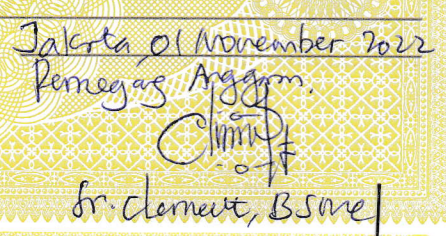 Jakarta, 01 November 2022
Pemegang Anggaran.
Sr. Clement, BSME